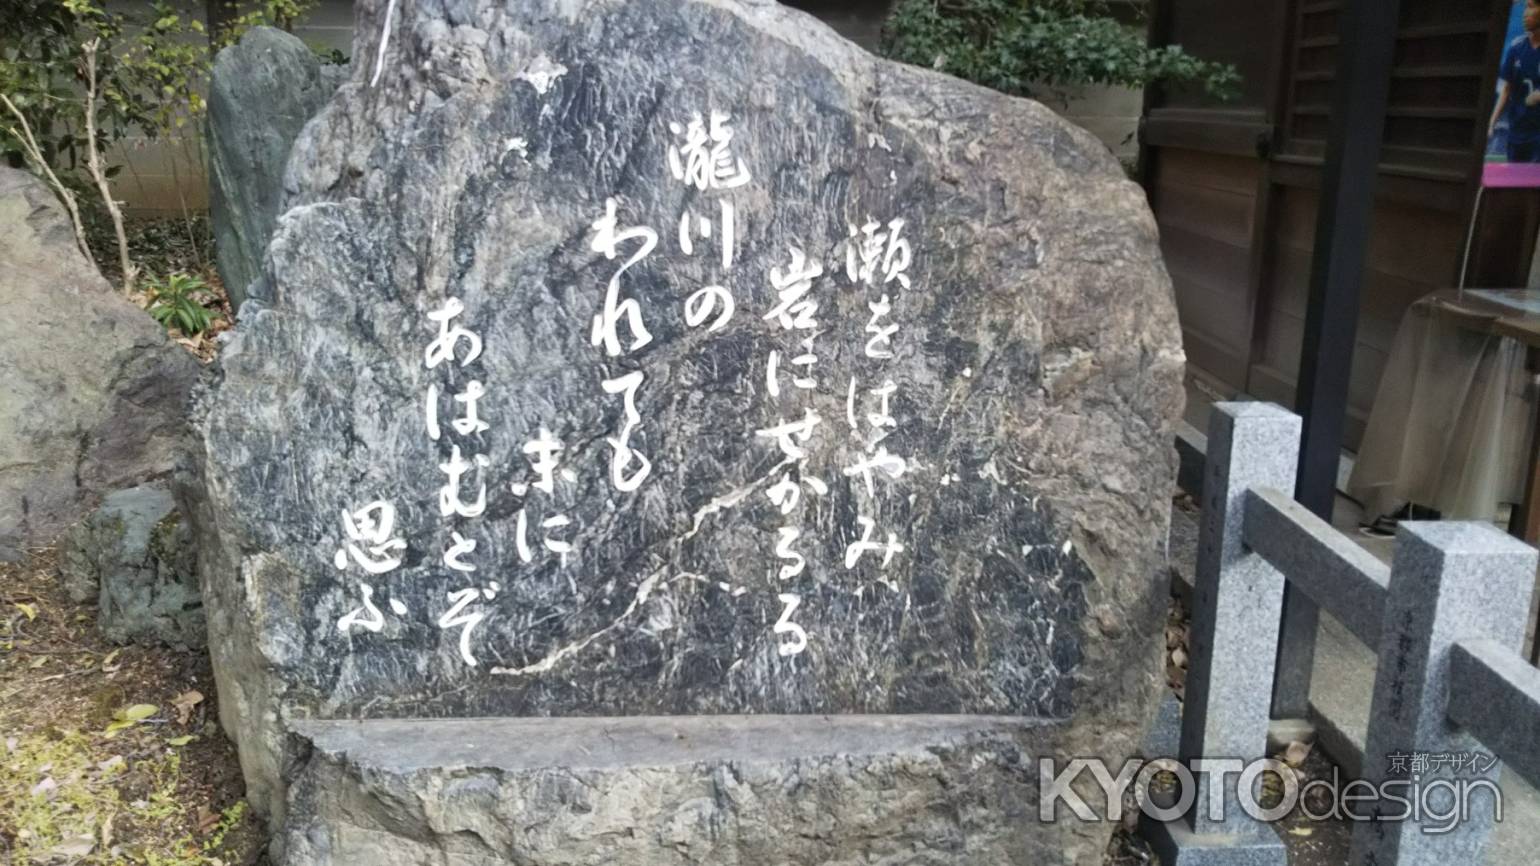 瀬をはやみ
岩にせかるる
瀧川の
われても
末に
あはむとぞ
思ふ
京都デザイン
KYOTOdesign